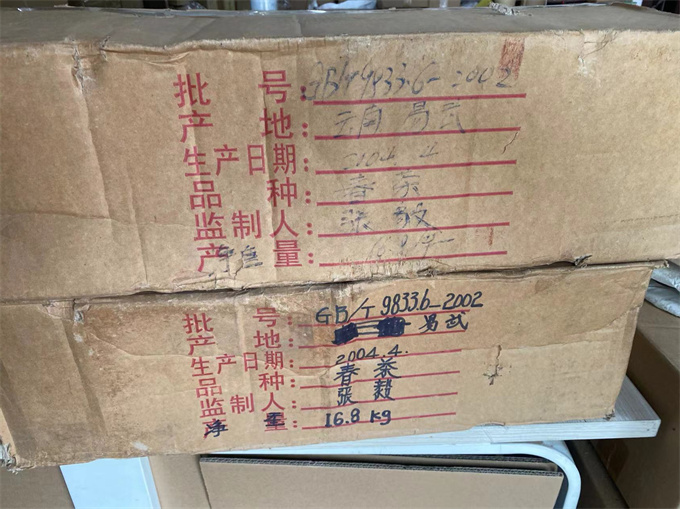 批号：GB/T 9833.6-2002
产地：易武
生产日期：2004.4
品种：春茶
监制人：张毅
产量：
批号：GB/T 9833.6-2002
产地：易武
生产日期：2004.4.
品种：春茶
监制人：張毅
净重量：16.8 kg